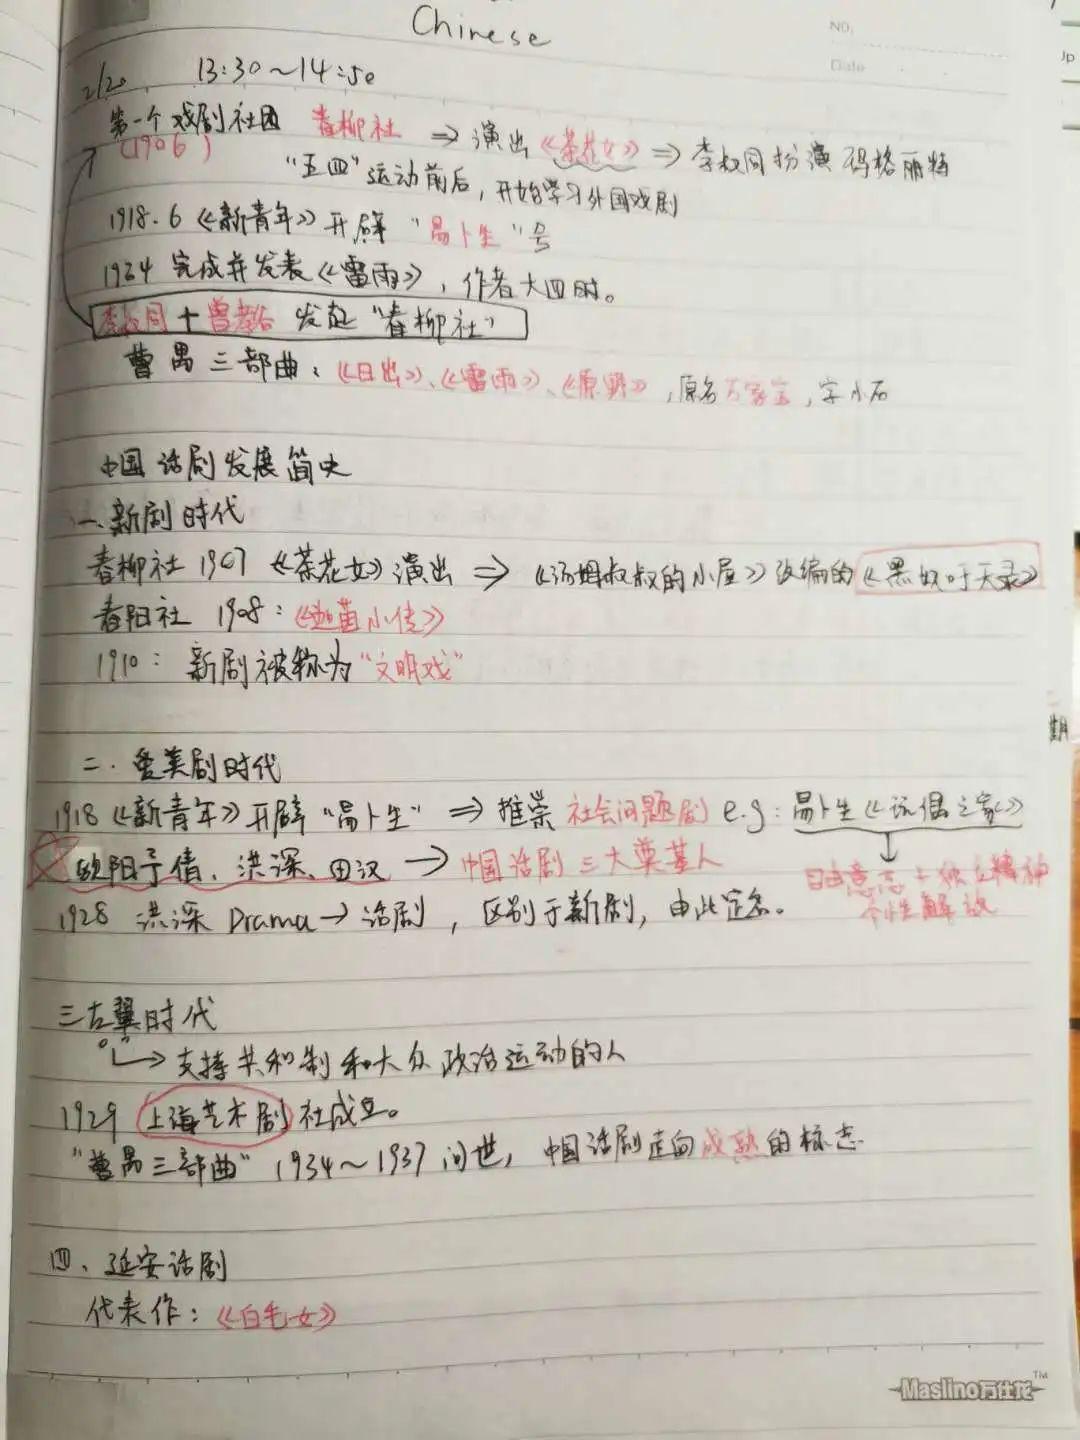 Chinese
NO.
Date
2/20 13:30～14:50
第一个戏剧社团 春柳社 ⇒ 演出《茶花女》⇒ 李叔同扮演玛格丽特
(1906) "五四"运动前后，开始学习外国戏剧
1918.6《新青年》开辟"易卜生"号
1934 完成并发表《雷雨》，作者大四时。
李叔同＋曾孝谷 发起"春柳社"
曹禺三部曲：《日出》、《雷雨》、《原野》，原名万家宝，字小石
中国话剧发展简史
一、新剧时代
春柳社 1907《茶花女》演出 ⇒ 《汤姆叔叔的小屋》改编的《黑奴吁天录》
春阳社 1908：《迦茵小传》
1910：新剧被称为"文明戏"
期
二. 爱美剧时代
1918《新青年》开辟"易卜生" ⇒ 推崇 社会问题剧 e.g：易卜生《玩偶之家》
欧阳予倩、洪深、田汉 → 中国话剧三大奠基人
自由意志＋独立精神
个性解放
1928 洪深 Drama → 话剧，区别于新剧，由此定名。
三左翼时代
→ 支持共和制和大众政治运动的人
1929 上海艺术剧社成立。
"曹禺三部曲" 1934～1937 问世，中国话剧走向成熟的标志
四、延安话剧
代表作：《白毛女》
Maslino万仕龙™